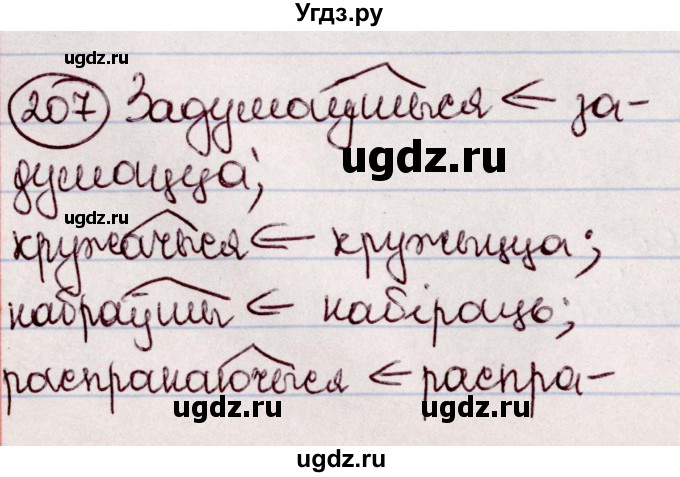 Угдз.ру
ugdz.ru ugdz.ru
207 Задумаўшыся ← за-
ugdz.ru
думацца;
ugdz.ru
кружачыся ← кружыцца;
набраўшы ← набіраць;
распранаючыся ← распра-
ugdz.ru ugdz.ru
ugdz.ru